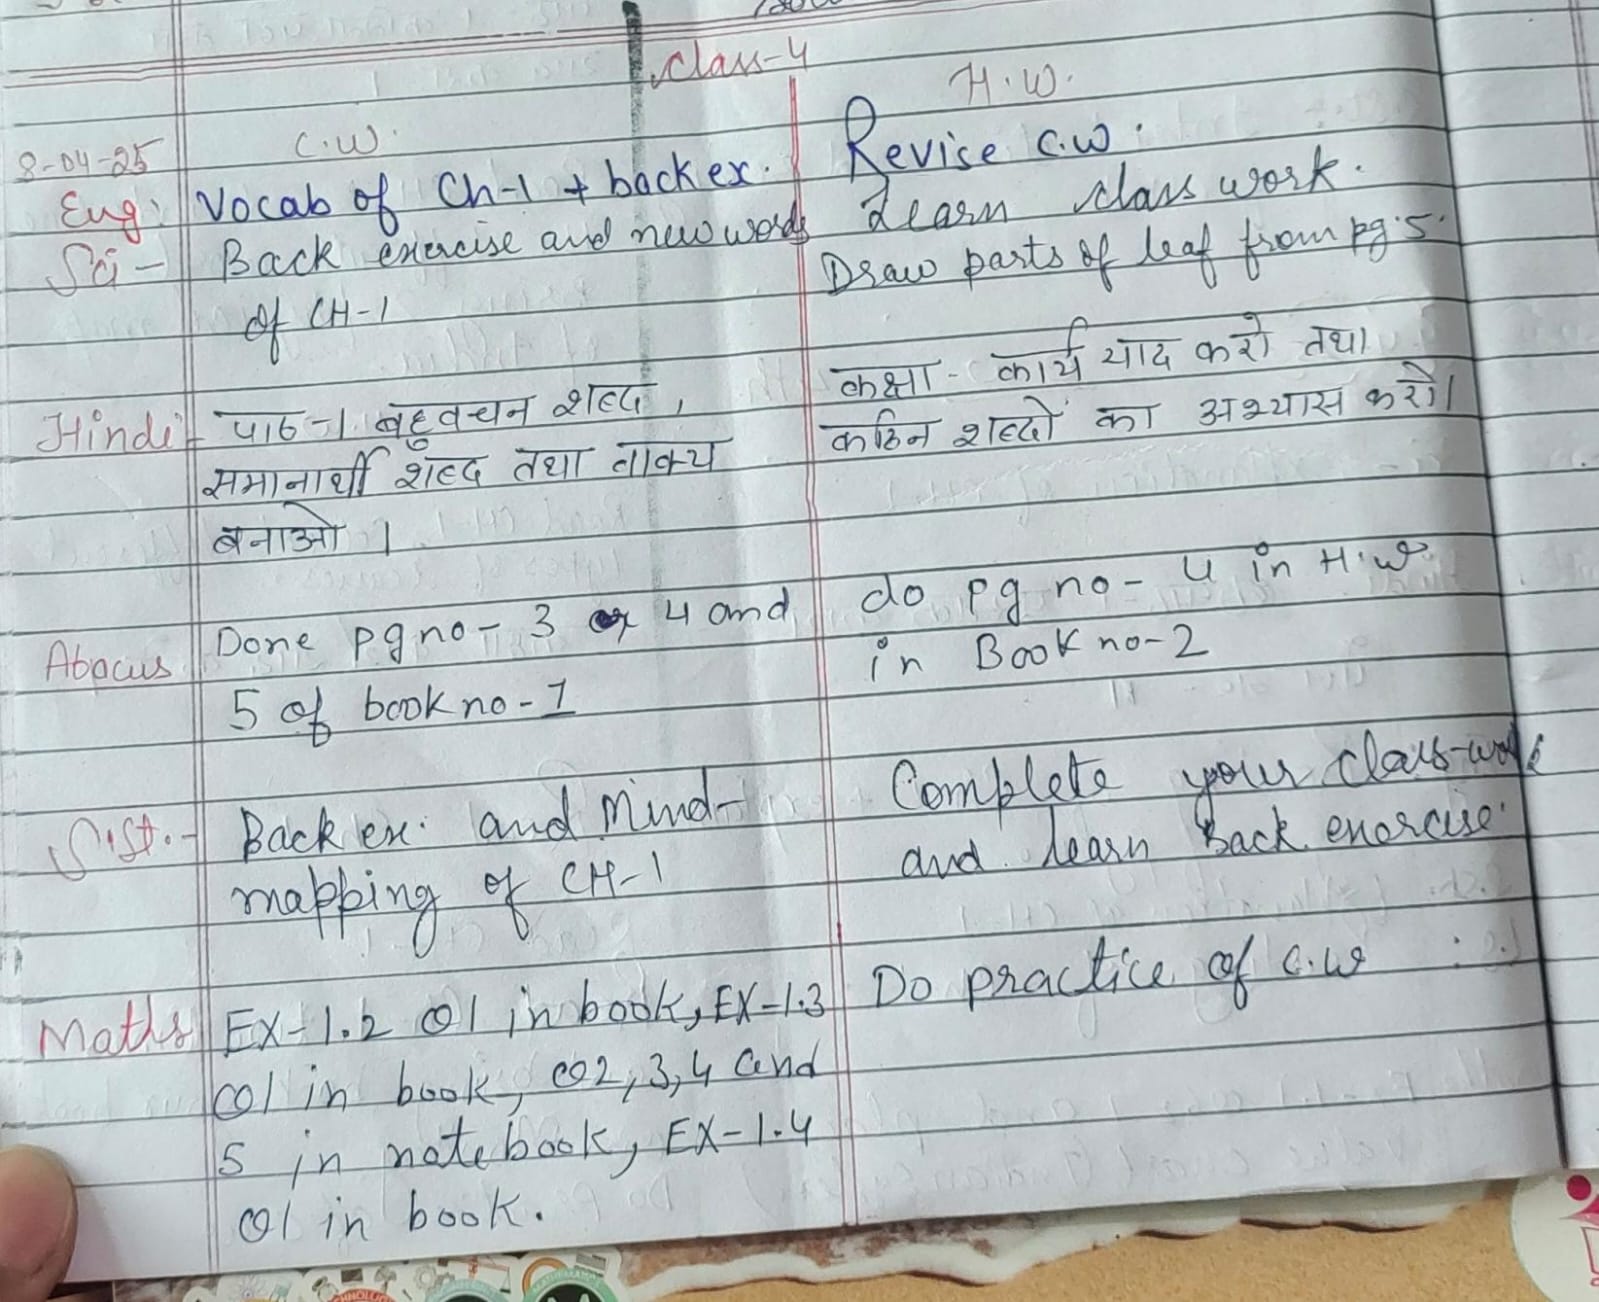 Class-4
C.W. H.W.
8-04-25
Eng: Vocab of Ch-1 + back ex. Revise C.W.
Sci - Back exercise and new words Learn class work.
of CH-1 Draw parts of leaf from pg.5.
Hindi- पाठ-1 बहुवचन शब्द, कक्षा-कार्य याद करो तथा
समानार्थी शब्द तथा वाक्य कठिन शब्दों का अभ्यास करो।
बनाओ।
Abacus Done pg no- 3 4 and do pg no- 4 in H.W
5 of book no-1 in Book no-2
S.St.- Back ex. and Mind- Complete your class-work
mapping of CH-1 and learn Back exercise.
Maths EX-1.2 Q1 in book, EX-1.3 Do practice of C.W
Q1 in book, Q2,3,4 and
5 in notebook, EX-1.4
Q1 in book.